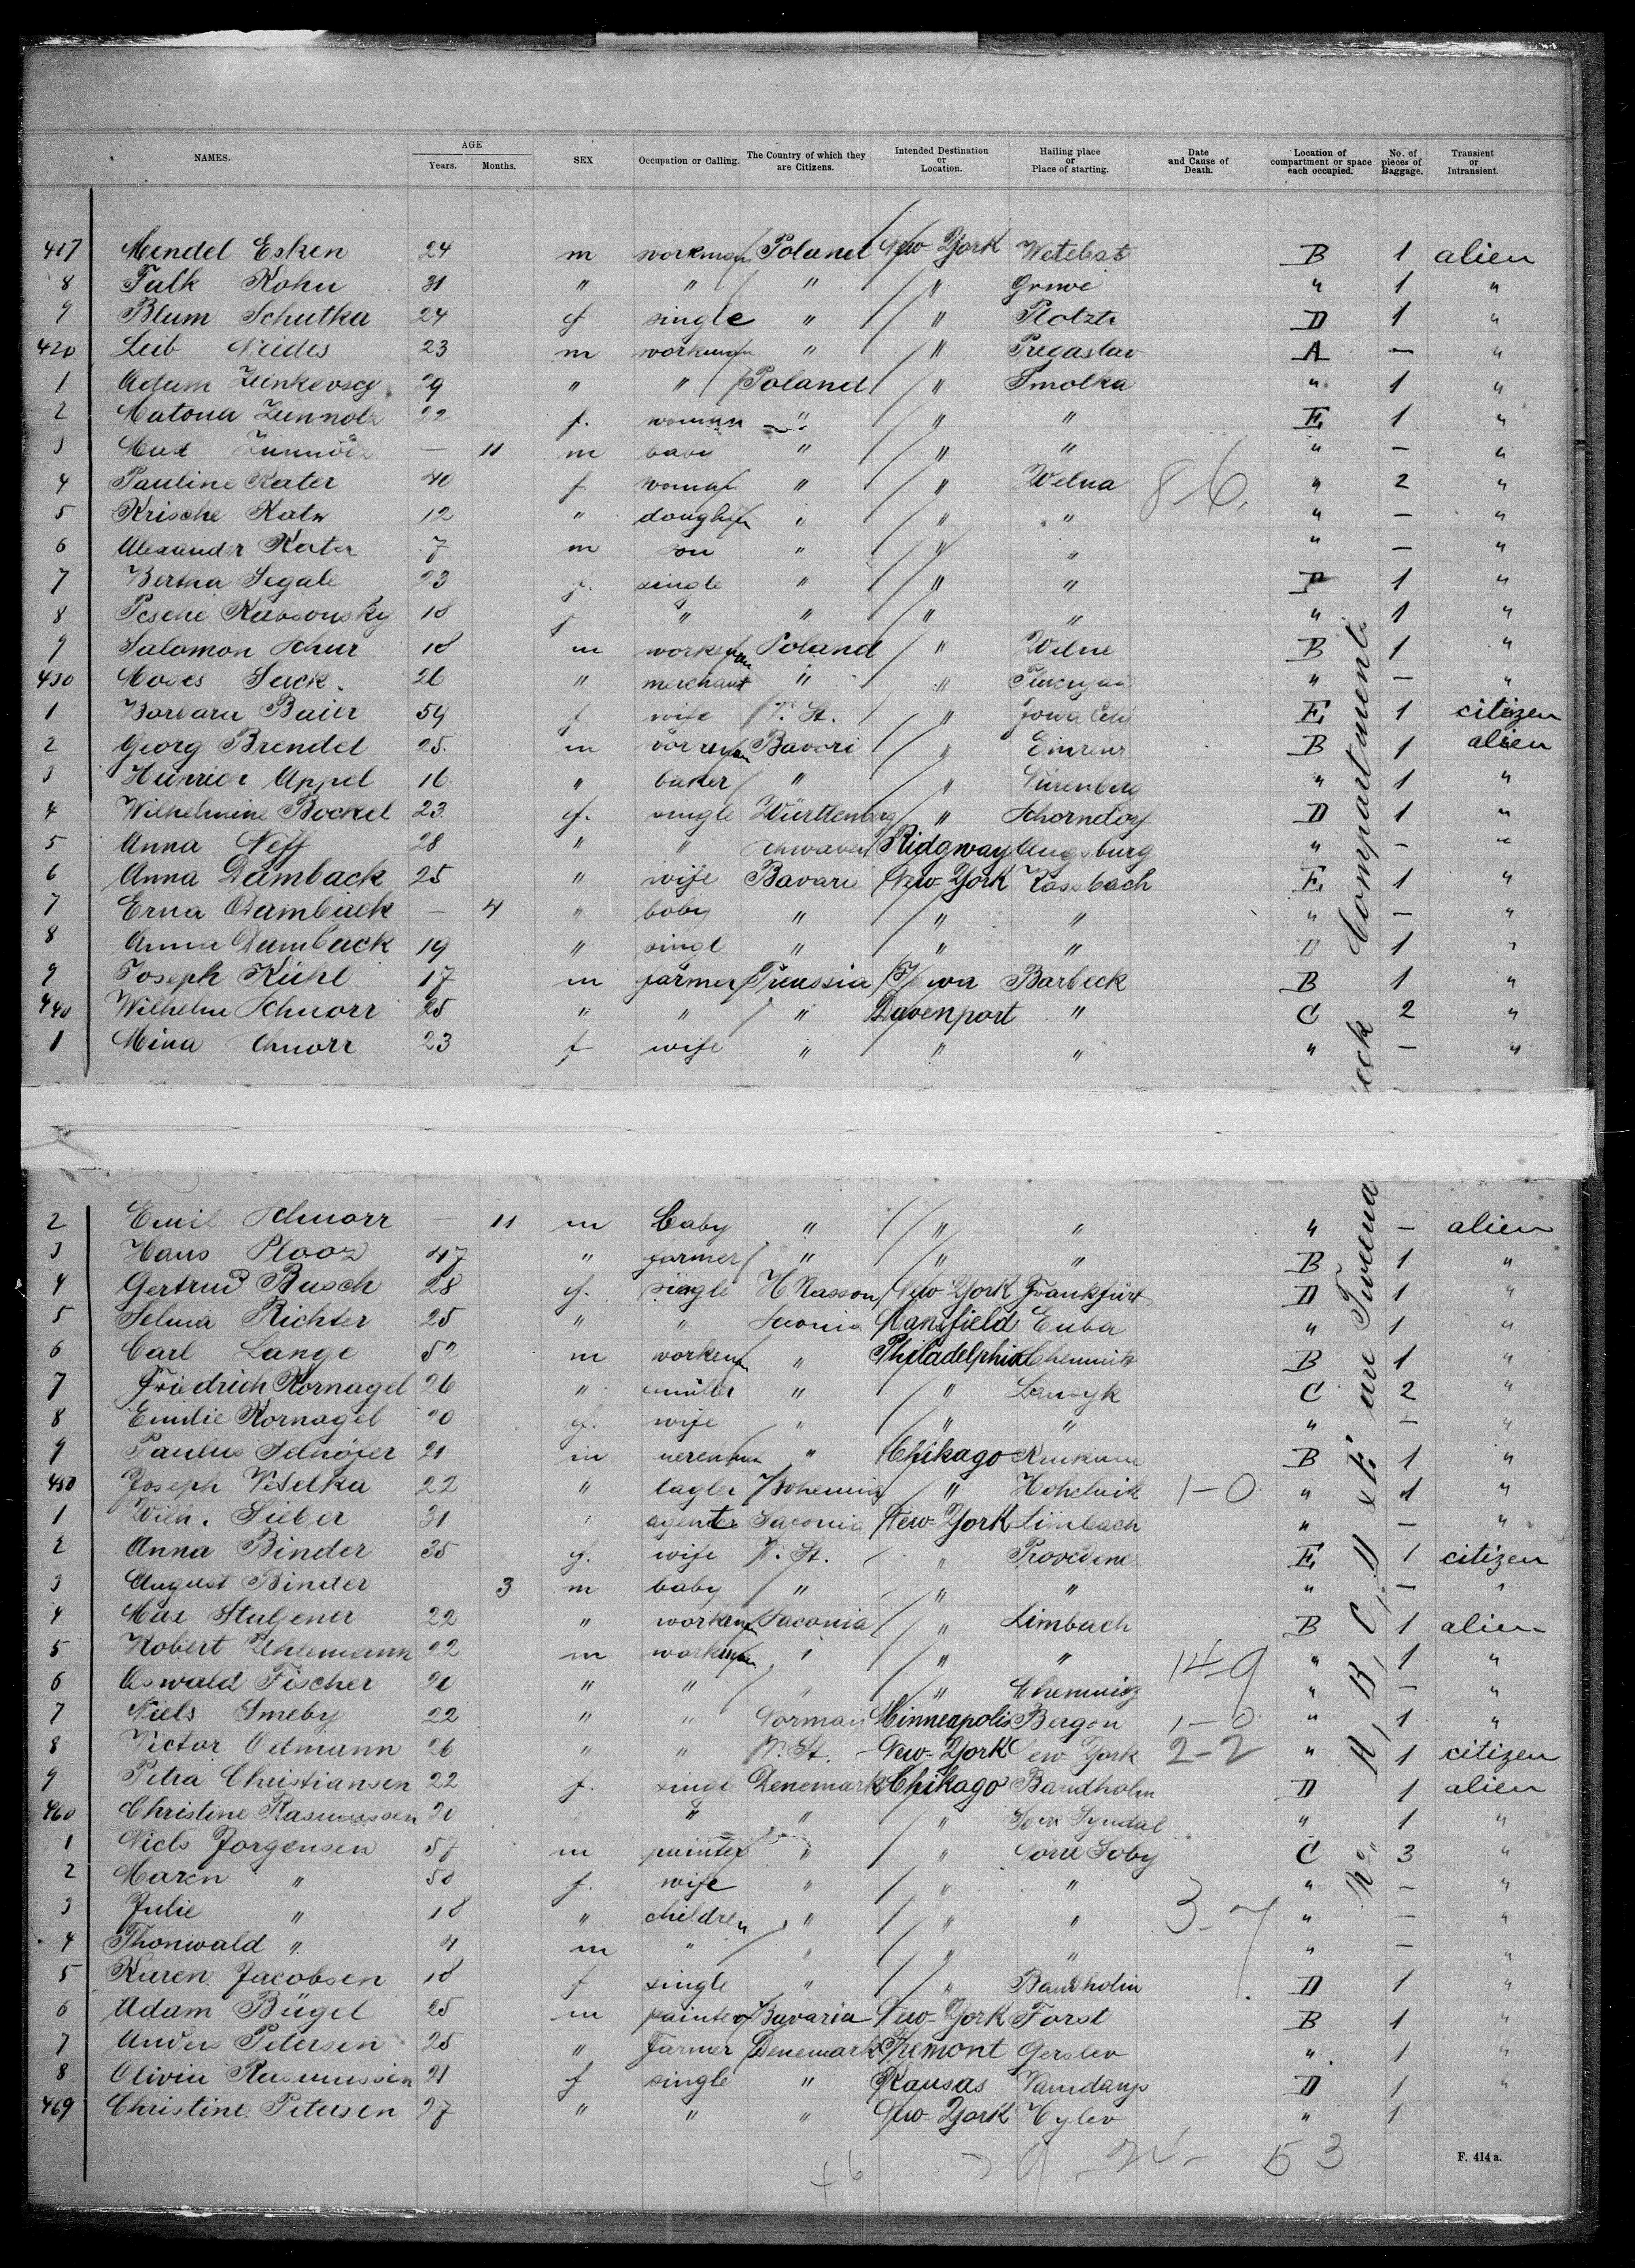 NAMES. AGE Years. Months. SEX Occupation or Calling. The Country of which they are Citizens. Intended Destination or Location. Hailing place or Place of starting. Date and Cause of Death. Location of compartment or space each occupied. No. of pieces of Baggage. Transient or Intransient.
417 Mendel Esken 24 m workman Poland New-York Witebsk B 1 alien
8 Falk Kohn 31 " " " " Griwe " 1 "
9 Blum Schutka 24 f single " " D 1 "
420 Leib Neides 23 m workman " " Pregaslav A — "
1 Adam 29 " " Poland " Smolka " 1 "
2 22 f. woman " " " E 1 "
3 — 11 m baby " " " " — "
4 Pauline Kater 40 f woman " " Wilna 8-6. " 2 "
5 Krische Kater 12 " doughter " " " " — "
6 Alexander Kater 7 m son " " " " — "
7 Bertha Segale 23 f. single " " " D 1 "
8 Pesche 18 f " " " " " 1 "
9 Salomon Schur 18 m workman Poland " Wilne B 1 "
430 Moses Sack. 26 " merchant " " " — "
1 Barbara Baier 59 f wife V. St. " Jowa Citi E 1 citizen
2 Georg Brendel 25. m workman Bavori " B 1 alien
3 Heinrich Appel 16 " baker " " Nürenberg " 1 "
4 Wilhelmine Bockel 23 f. single Württenberg " Schorndorf D 1 "
5 Anna Neff 28 " " Schwaven Ridgway Augsburg " - "
6 Anna Damback 25 " wife Bavaris New-York Rossbach E 1 "
7 Erna Damback — 4 " baby " " " " — "
8 Anna Damback 19 " singl " " " D 1 "
9 Joseph Kühl 17 m farmer Preussia Jowa Barbeck B 1 "
440 Wilhelm Schnorr 25 " " " Davenport " C 2 "
1 Mina Schnorr 23 f wife " " " " — "
2 Emil Schnorr — 11 m baby " " " " — alien
3 Hans Plooz 47 " farmer " " " B 1 "
4 Gertrud Busch 28 f. single H Nasson New-York Frankfurt D 1 "
5 Selma Richter 25 " " Mansfield Euba " 1 "
6 Carl Lange 52 m workman " Philadelphia Chemnitz B 1 "
7 Friedrich Kornagel 26 " miller " " C 2 "
8 Emilie Kornagel 20 f. wife " " " " — "
9 Paulus Schöfer 21 m " Chikago B 1 "
450 Joseph Veselka 22 " tagler Bohemia " Hohelnik 1-0 " 1 "
1 Wilh. Sieber 31 " agenter Saconia New-York Limbach " — "
2 Anna Binder 35 f. wife V. St. " Provedene E 1 citizen
3 August Binder 3 m baby " " " " — "
4 Max 22 " workman Saconia " Limbach B 1 alien
5 Robert Uhlemann 22 m workman " " " 14-9 " 1 "
6 Oswald Fischer 20 " " " " Chemnitz " — "
7 Niels Smeby 22 " " Norman Minneapolis Bergen 1-0 " 1 "
8 Victor Oetmann 26 " " V. St. New-York New-York 2-2 " 1 citizen
9 Petra Christiansen 22 f. single Denemark Chikago Bandholm D 1 alien
460 Christine Rasmussen 20 " " " " 1 "
1 Niels Jorgensen 57 m painter " " Norre Soby C 3 "
2 Maren " 50 f. wife " " " " — "
3 Julie " 18 " children " " " 3-7 " — "
4 Thorwald " 4 m " " " " " — "
5 Karen Jacobsen 18 f single " " Bandholm D 1 "
6 Adam Bügel 25 m painter Bavaria New-York Forst B 1 "
7 Anders Petersen 25 " Farmer Denemark Fremont Gerslev " 1 "
8 Olivia Rasmussen 21 f single " Kansas D 1 "
469 Christine Petersen 27 " " " New-York " 1
+6 53
F. 414 a.